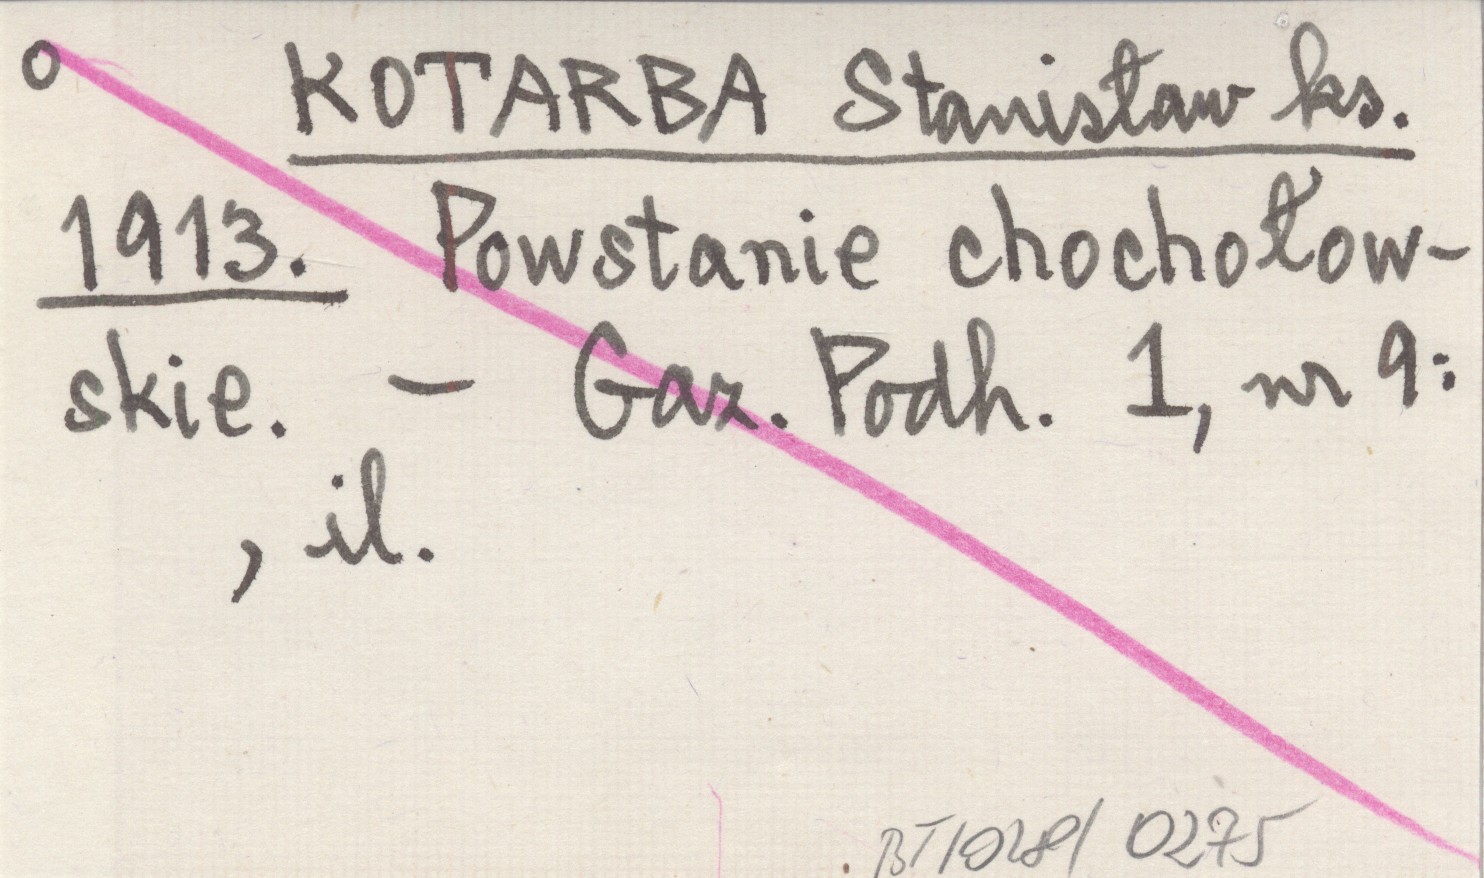 o KOTARBA Stanisław ks.
1913. Powstanie chochołow-
skie. - Gaz. Podh. 1, nr 9:
, il.
0275